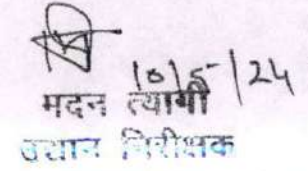 10/5/24
मदन त्यागी
उद्यान निरीक्षक